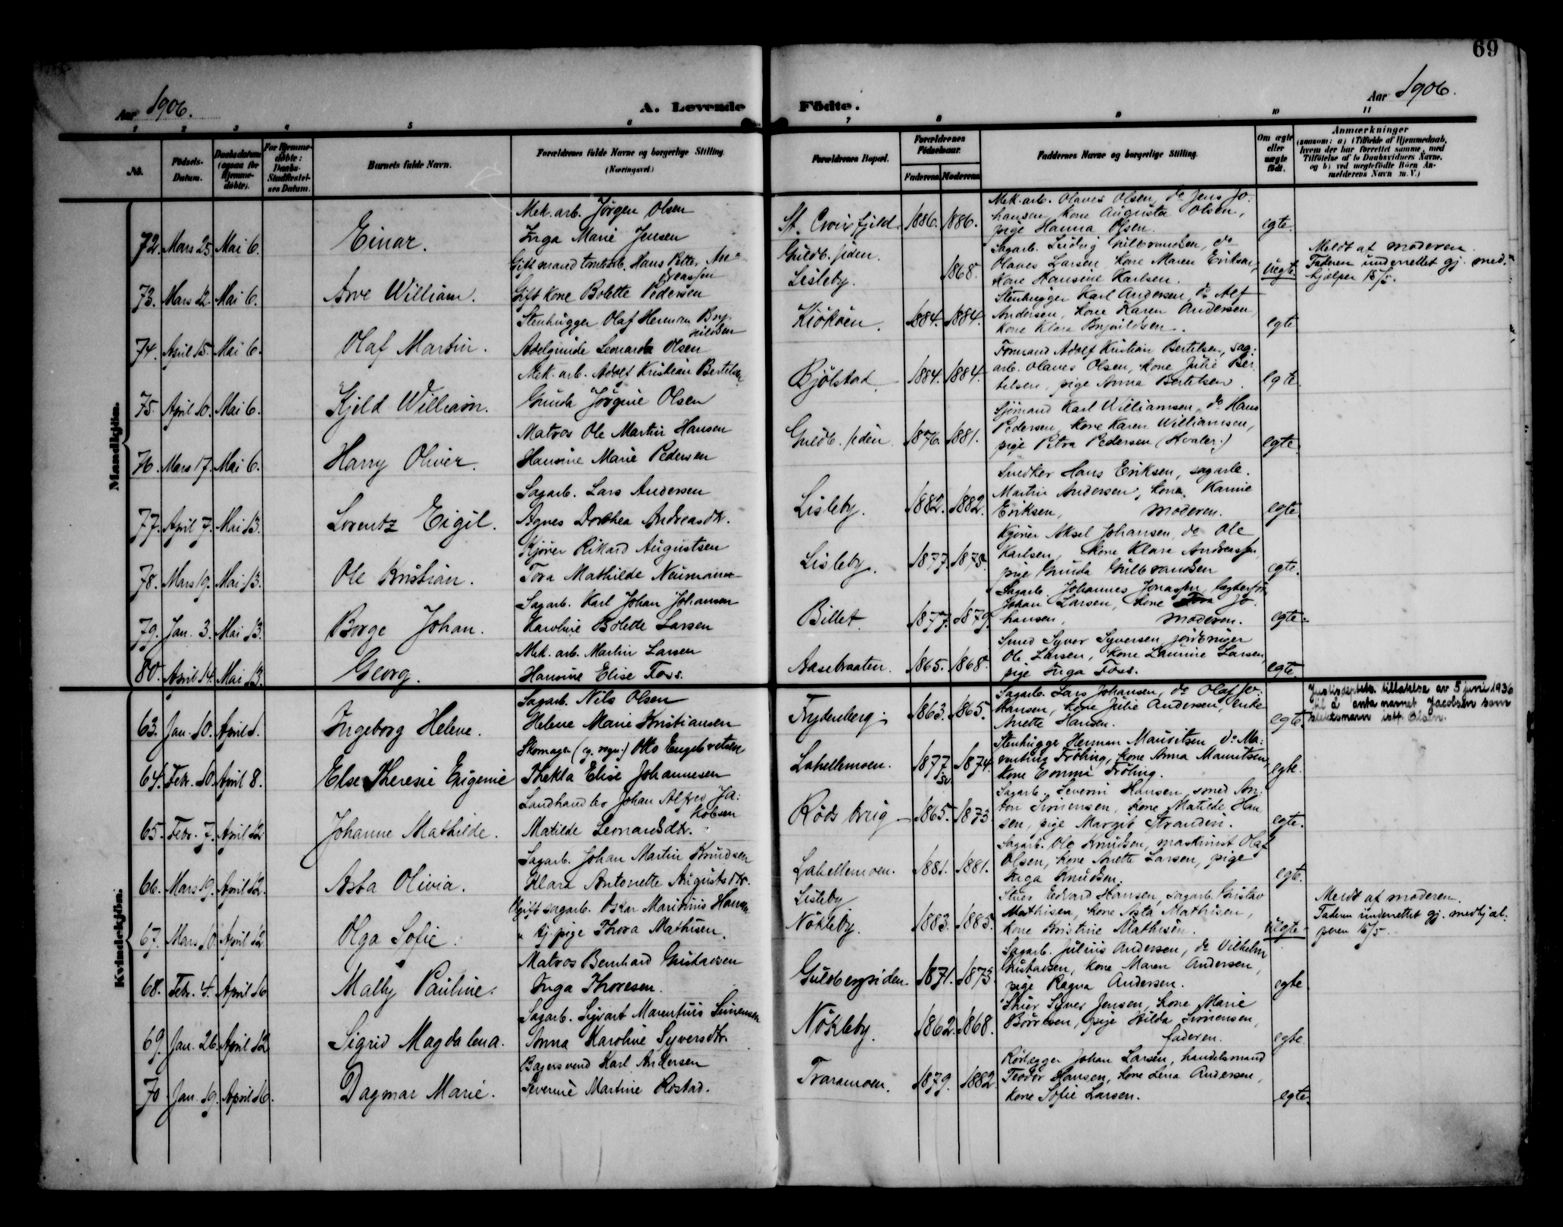 69
Aar 1906.
A. Levende Fødte.
Aar 1906.
1 2 3 4 5 6 7 8 9 10 11
No.
Fødsels-Datum.
Daabsdatum (ogsaa for Hjemmedøbte).
For Hjemmedøbte: Daabs Stadfæstelses Datum.
Barnets fulde Navn.
Forældrenes fulde Navne og borgerlige Stilling (Næringsvei)
Forældrenes Bopæl.
Forældrenes Fødselsaar.
Faderens. Moderens.
Faddernes Navne og borgerlige Stilling.
Om ægte eller uægte født.
Anmærkninger
Mandkjøn.
72. Mars 25. Mai 6. Einar.
Mek. arb. Jørgen Olsen
Inga Marie Jensen
St. Croix fjeld. 1886. 1886.
Mek. arb. Olaves Olsen, do Jens Jo-
hansen, kone Augusta Olsen,
pige Hanna Olsen.
egte.
73. Mars 12. Mai 6. Arve William.
Gift mand tomtearb. Hans Petter An-
dreassen
Gift kone Bolette Pedersen
Guldb. siden.
Lisleby. 1868.
Sagarb. Ludvig Gulbrandsen, do
Olaves Larsen, kone Maren Eriksen,
kone Hansine Karlsen.
Uegte.
Meldt af moderen.
Faderen underrettet gj. med-
hjelper 15/5.
74. April 15. Mai 6. Olaf Martin.
Stenhugger Olaf Herman Bryn-
nildsen
Adelgunde Leonarda Olsen
Kiøkøen. 1884. 1884.
Stenhugger Karl Andersen, do Alf
Andersen, kone Karen Andersen
kone Klara Brynildsen.
egte
75. April 10. Mai 6. Kjeld William.
Mek. arb. Adolf Kristian Bertelsen
Gunda Jørgine Olsen
Bjølstad 1884. 1884.
Formand Adolf Kristian Bertelsen, sag-
arb. Olaves Olsen, kone Julie Ber-
telsen, pige Anna Bertelsen.
egte.
76. Mars 17. Mai 6. Harry Oliver.
Matros Ole Martin Hansen
Hansine Marie Pedersen
Guldb. siden 1876. 1881.
Sjømand Karl Williamsen, do Hans
Pedersen, kone Karen Williamsen,
pige Petra Pedersen (Hvaler.)
egte.
77. April 7. Mai 13. Lorentz Eigil.
Sagarb. Lars Andersen
Agnes Dorthea Andreasdtr.
Lisleby. 1882. 1882.
Snedker Hans Eriksen, sagarb.
Martin Andersen, kone Kamie
Eriksen, moderen.
egte.
78. Mars 19. Mai 13. Ole Kristian.
Kjører Rikard Augustsen
Tora Mathilde Neumann
Lisleby. 1877. 1875.
Kjører Aksel Johansen, do Ole
Karlsen, kone Klara Andreassen,
pige Gunda Gulbrandsen
egte.
79. Jan. 3. Mai 13. Borge Johan.
Sagarb. Karl Johan Johansen
Karoline Bolette Larsen
Billet. 1877. 1879.
Sagarb. Johannes Jonassen,
Johan Larsen, kone Jo-
hansen, moderen.
egte.
80. April 14. Mai 13. Georg.
Mek. arb. Martin Larsen
Hansine Elise Foss.
Aasebraaten. 1865. 1868.
Smed Syver Syversen,
Ole Larsen, kone Laurine Larsen,
pige Inga Foss.
egte
Kvindekjøn.
63. Jan. 10. April 1. Ingeborg Helene.
Sagarb. Nils Olsen
Helene Marie Kristiansen
Frydenberg. 1863. 1865.
Sagarb. Lars Johansen, do Olaf Jo-
hansen, kone Julie Andersen, enke
Anette Hansen.
egte.
Justisdeptets tillatelse av 5 juni 1936
til å anta navnet Jacobsen som
slektsnavn istf. Olsen.
64. Febr. 10. April 8. Else Theresie Eugenie
Skomager (og regn.) Otto Engebretsen
Thekla Elise Johannesen
Lahellemoen. 1877. 1874.
Stenhugger Herman Mauritsen do Ma-
Frøling, kone Anna Mauritsen,
kone Emma Frøling.
egte.
65. Febr. 7. April 12. Johanne Mathilde.
Landhandler Johan Alfred Ja-
kobsen
Matilde Leonardsdtr.
Røds brug 1865. 1873
Sagarb. Severin Hansen, smed An-
ton Simensen, kone Matilde Han-
sen, pige Margit Stranden.
egte.
66. Mars 19. April 12. Asta Olivia.
Sagarb. Johan Martin Knudsen
Klara Antonette Augustsdtr.
Lahellemoen. 1881. 1881.
Sagarb. Ole Knudsen, maskinist Olaf
Olsen, kone Anette Larsen, pige
Inga Knudsen.
egt.
67. Mars 10. April 12 Olga Sofie.
Ugift sagarb. Oskar Marinius Hansen
" tj. pige Thora Mathisen.
Lisleby
Nøkleby. 1883. 1885.
Stuer Edvard Hansen, sagarb. Gustav
Mathisen, kone Asta Mathisen,
kone Kristine Mathisen.
uegte.
Meldt af moderen.
Faderen underrettet gj. medhjel-
peren 15/5.
68. Febr. 4. April 16 Mally Pauline.
Matros Bernhard Gustavsen
Inga Thoresen.
Guldbergsiden 1871. 1873
Sagarb. Julius Andersen, do Vilhelm
Gustavsen, kone Maren Andersen,
pige Ragna Andersen.
egte
69. Jan. 26. April 12 Sigrid Magdalena.
Sagarb. Sigvart Marentius Simensen
Anna Karoline Syversdtr.
Nøkleby. 1862. 1868.
Stuer Syver Jensen, kone Marie
Børresen, pige Hilda Simensen,
faderen.
egte
70 Jan. 19. April 16. Dagmar Marie.
Bagersvend Karl Andersen
Severine Martine Rostad.
Traramoen. 1879. 1882.
Rørlægger Johan Larsen, handelsmand
Teodor Hansen, kone Lina Andersen,
kone Sofie Larsen.
egte.